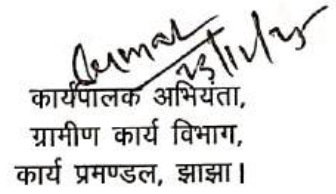 23/11/25
कार्यपालक अभियंता,
ग्रामीण कार्य विभाग,
कार्य प्रमण्डल, झाझा।